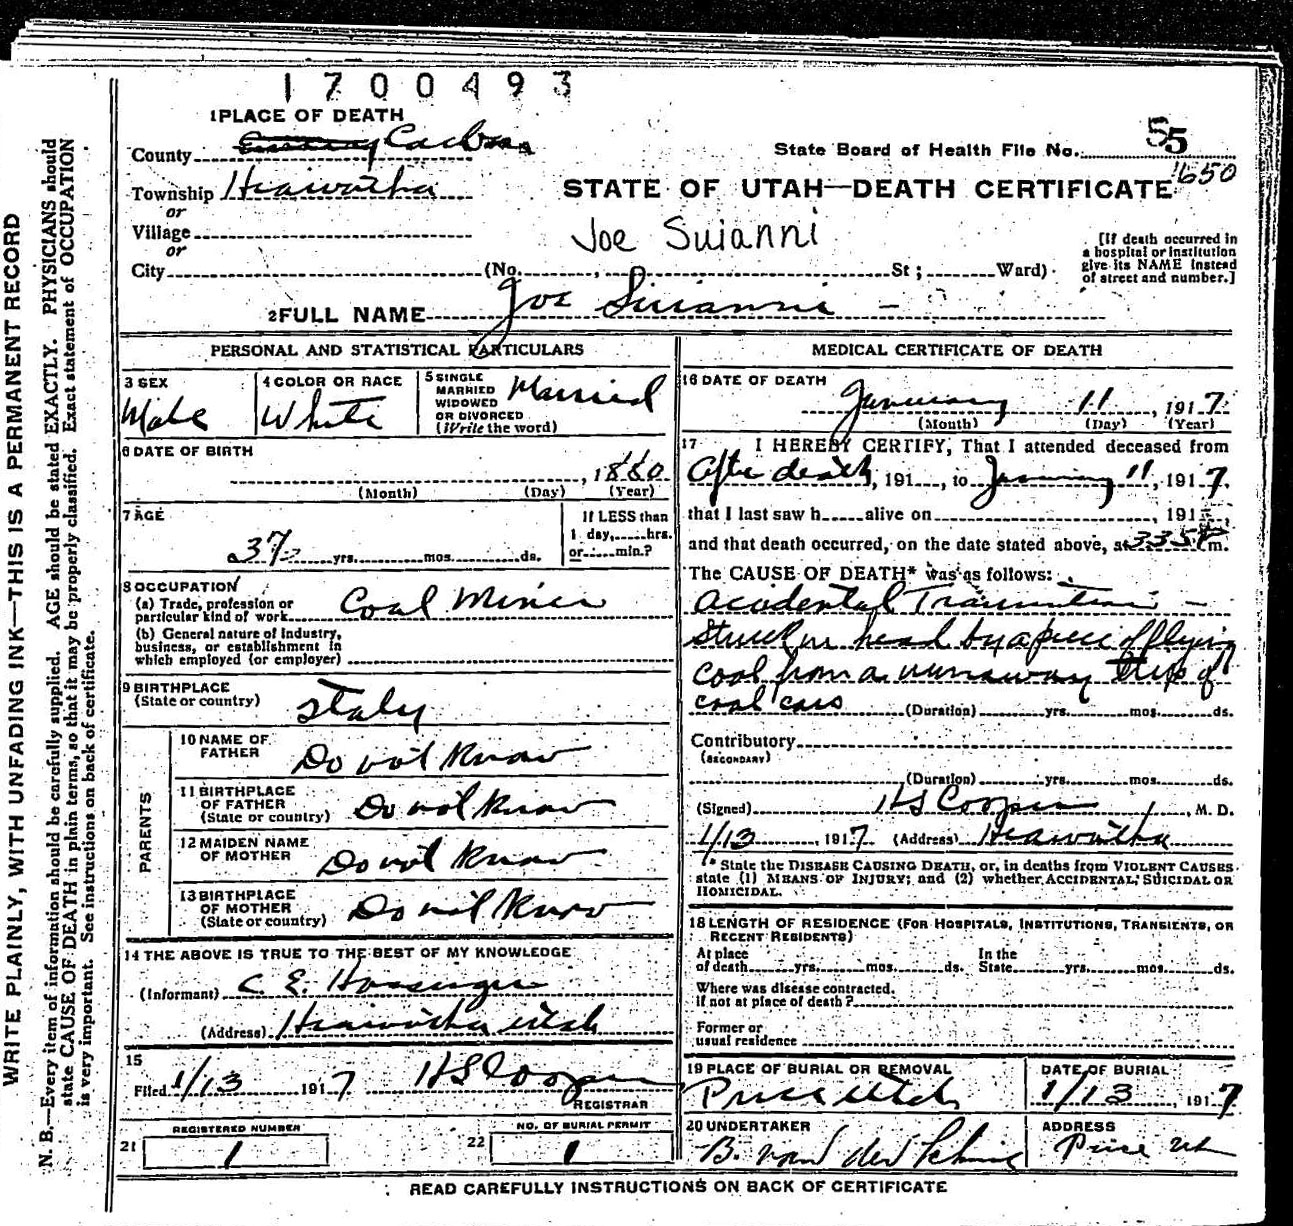 1700493
1 PLACE OF DEATH
County Emery Carbon
State Board of Health File No. 55
1650
Township Hiawatha
STATE OF UTAH—DEATH CERTIFICATE
or
Village
Joe Suianni
or
City (No. , St; Ward)
[If death occurred in
a hospital or institution
give its NAME instead
of street and number.]
2 FULL NAME Joe Sirianni
PERSONAL AND STATISTICAL PARTICULARS
3 SEX
Male
4 COLOR OR RACE
White
5 SINGLE
MARRIED
WIDOWED
OR DIVORCED
(Write the word)
Married
6 DATE OF BIRTH
, 1880
(Month) (Day) (Year)
7 AGE
37 yrs. mos. ds.
If LESS than
1 day, hrs.
or min.?
8 OCCUPATION
(a) Trade, profession or
particular kind of work Coal Miner
(b) General nature of industry,
business, or establishment in
which employed (or employer)
9 BIRTHPLACE
(State or country) Italy
PARENTS
10 NAME OF
FATHER Do not Know
11 BIRTHPLACE
OF FATHER
(State or country) Do not Know
12 MAIDEN NAME
OF MOTHER Do not Know
13 BIRTHPLACE
OF MOTHER
(State or country) Do not Know
14 THE ABOVE IS TRUE TO THE BEST OF MY KNOWLEDGE
(Informant) C. E.
(Address) Hiawatha Utah
15
Filed 1/13 1917 HS Cooper
REGISTRAR
21 REGISTERED NUMBER
1
22 NO. OF BURIAL PERMIT
1
MEDICAL CERTIFICATE OF DEATH
16 DATE OF DEATH
January 11, 1917
(Month) (Day) (Year)
17 I HEREBY CERTIFY, That I attended deceased from
After death, 191 , to January 11, 1917,
that I last saw h alive on , 191 ,
and that death occurred, on the date stated above, at 335P m.
The CAUSE OF DEATH* was as follows:
Accidental Traumatism —
Struck on head by a piece of flying
coal from a runaway trip of
coal cars
(Duration) yrs. mos. ds.
Contributory
(SECONDARY)
(Duration) yrs. mos. ds.
(Signed) HS Cooper, M. D.
1/13, 1917 (Address) Hiawatha
* State the DISEASE CAUSING DEATH, or, in deaths from VIOLENT CAUSES
state (1) MEANS OF INJURY; and (2) whether ACCIDENTAL, SUICIDAL OR
HOMICIDAL.
18 LENGTH OF RESIDENCE (FOR HOSPITALS, INSTITUTIONS, TRANSIENTS, OR
RECENT RESIDENTS)
At place
of death yrs. mos. ds.
In the
State yrs. mos. ds.
Where was disease contracted.
if not at place of death?
Former or
usual residence
19 PLACE OF BURIAL OR REMOVAL
Price Utah
DATE OF BURIAL
1/13, 1917
20 UNDERTAKER
B. van der
ADDRESS
Price Ut
READ CAREFULLY INSTRUCTIONS ON BACK OF CERTIFICATE
WRITE PLAINLY, WITH UNFADING INK—THIS IS A PERMANENT RECORD
N. B.—Every item of information should be carefully supplied. AGE should be stated EXACTLY. PHYSICIANS should
state CAUSE OF DEATH in plain terms, so that it may be properly classified. Exact statement of OCCUPATION
is very important. See instructions on back of certificate.